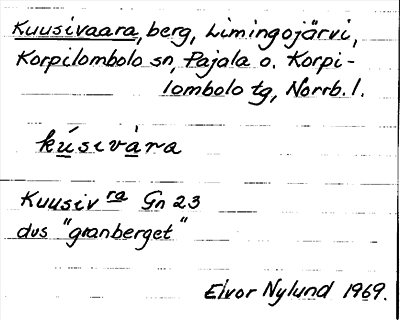 Kuusivaara, berg, Limingojärvi,
Korpilombolo sn, Pajala o. Korpi-
lombolo tg, Norrb. l.
kúsivàra
Kuusiv ra Gn 23
dvs "granberget"
Elvor Nylund 1969.